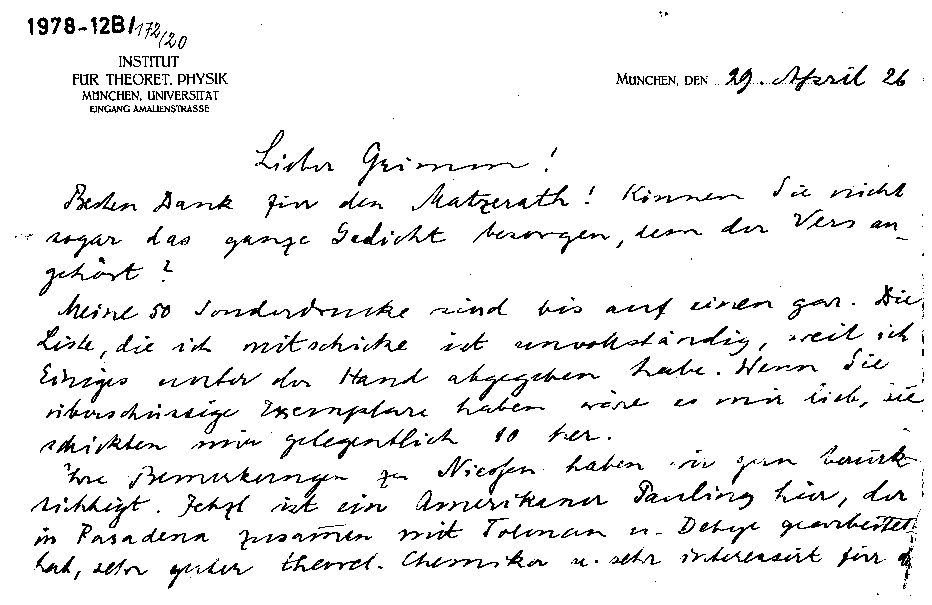 1978-12B/172/20
INSTITUT
FÜR THEORET. PHYSIK
MÜNCHEN, UNIVERSITÄT
EINGANG AMALIENSTRASSE
MÜNCHEN, DEN 29. April 26
Lieber Grimm!
Besten Dank für den Matzerath! Können Sie nicht
sogar das ganze Gedicht besorgen, dem der Vers an-
gehört?
Meine 50 Sonderdrucke sind bis auf einen gar. Die
Liste, die ich mitschicke ist unvollständig, weil ich
Einiges unter der Hand abgegeben habe. Wenn Sie
überschüssige Exemplare haben wäre es mir lieb, sie
schickten mir gelegentlich 10 her.
Ihre Bemerkungen zu haben wir gern berück-
sichtigt. Jetzt ist ein Amerikaner Pauling hier, der
in Pasadena zusammen mit Tolman u. Debye gearbeitet
hat, sehr guter theoret. Chemiker u. sehr interessiert für